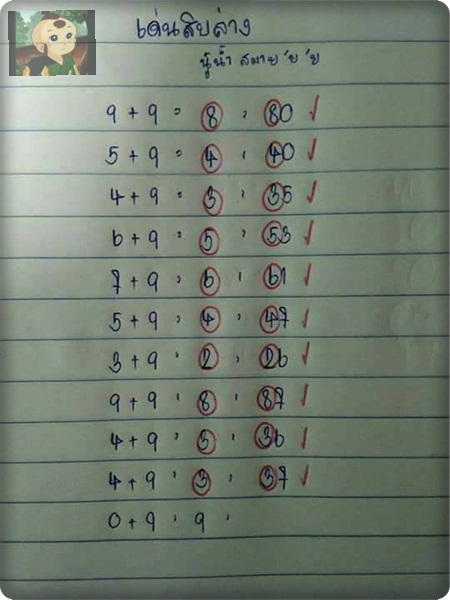 เด่นสิบล่าง
นู๋น้ำ สบาย ๆ ๆ
9 + 9 = 8 , 80 ✓
5 + 9 = 4 , 40 ✓
4 + 9 = 3 , 35 ✓
6 + 9 = 5 , 53 ✓
7 + 9 = 6 , 61 ✓
5 + 9 = 4 , 47 ✓
3 + 9 = 2 , 26 ✓
9 + 9 = 8 , 87 ✓
4 + 9 = 3 , 36 ✓
4 + 9 = 3 , 37 ✓
0 + 9 = 9 ,